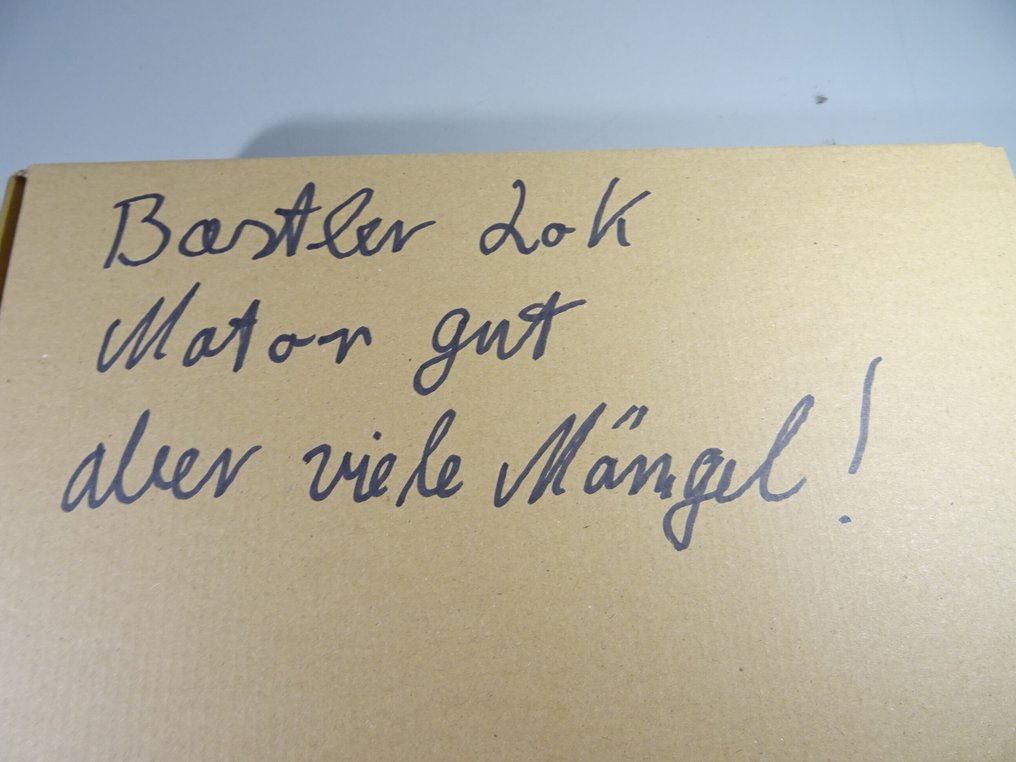 Bastler Lok
Motor gut
aber viele Mängel!